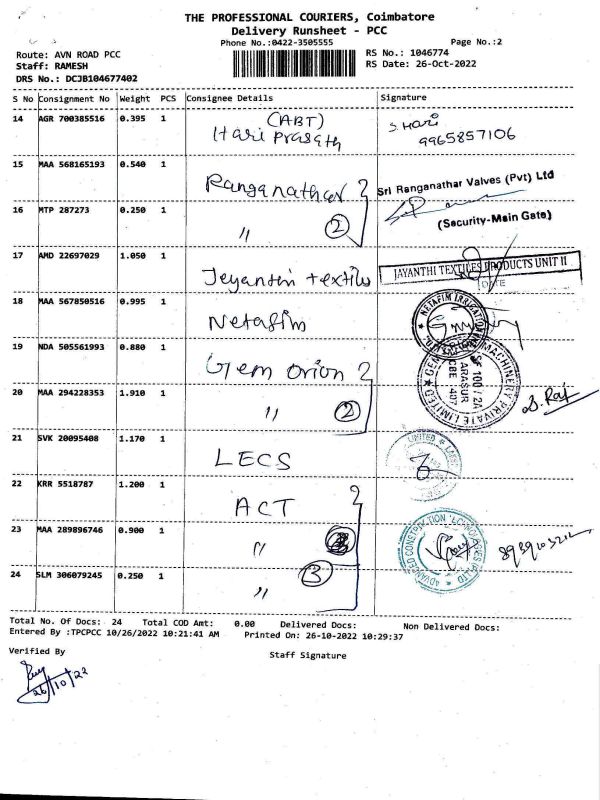 THE PROFESSIONAL COURIERS, Coimbatore
Delivery Runsheet - PCC
Phone No.:0422-3505555 Page No.:2
Route: AVN ROAD PCC RS No.: 1046774
Staff: RAMESH RS Date: 26-Oct-2022
DRS No.: DCJB104677402
S No Consignment No Weight PCS Consignee Details Signature
14 AGR 700385516 0.395 1 (ABT) S. Hari
Hari Prasath 9965857106
15 MAA 568165193 0.540 1 Ranganathar Sri Ranganathar Valves (Pvt) Ltd
16 MTP 287273 0.250 1 " 2 (Security-Main Gate)
17 AMD 22697029 1.050 1 Jeyanthi textiles JAYANTHI TEXTILES PRODUCTS UNIT II
DATE
18 MAA 567850516 0.995 1 Netafim NETAFIM IRRIGATION
19 NDA 505561993 0.880 1 Gem Orion GEM MACHINERY PRIVATE LIMITED
SF 100 / 2A
ARASUR
CBE - 407
20 MAA 294228353 1.910 1 " 2 S. Raj
21 SVK 20095408 1.170 1 LECS LIMITED
22 KRR 5518787 1.200 1 ACT
23 MAA 289896746 0.900 1 " ADVANCED CONSTRUCTION TECHNOLOGIES (P) LTD
24 SLM 306079245 0.250 1 " 3
Total No. Of Docs: 24 Total COD Amt: 0.00 Delivered Docs: Non Delivered Docs:
Entered By :TPCPCC 10/26/2022 10:21:41 AM Printed On: 26-10-2022 10:29:37
Verified By Staff Signature
26/10/22